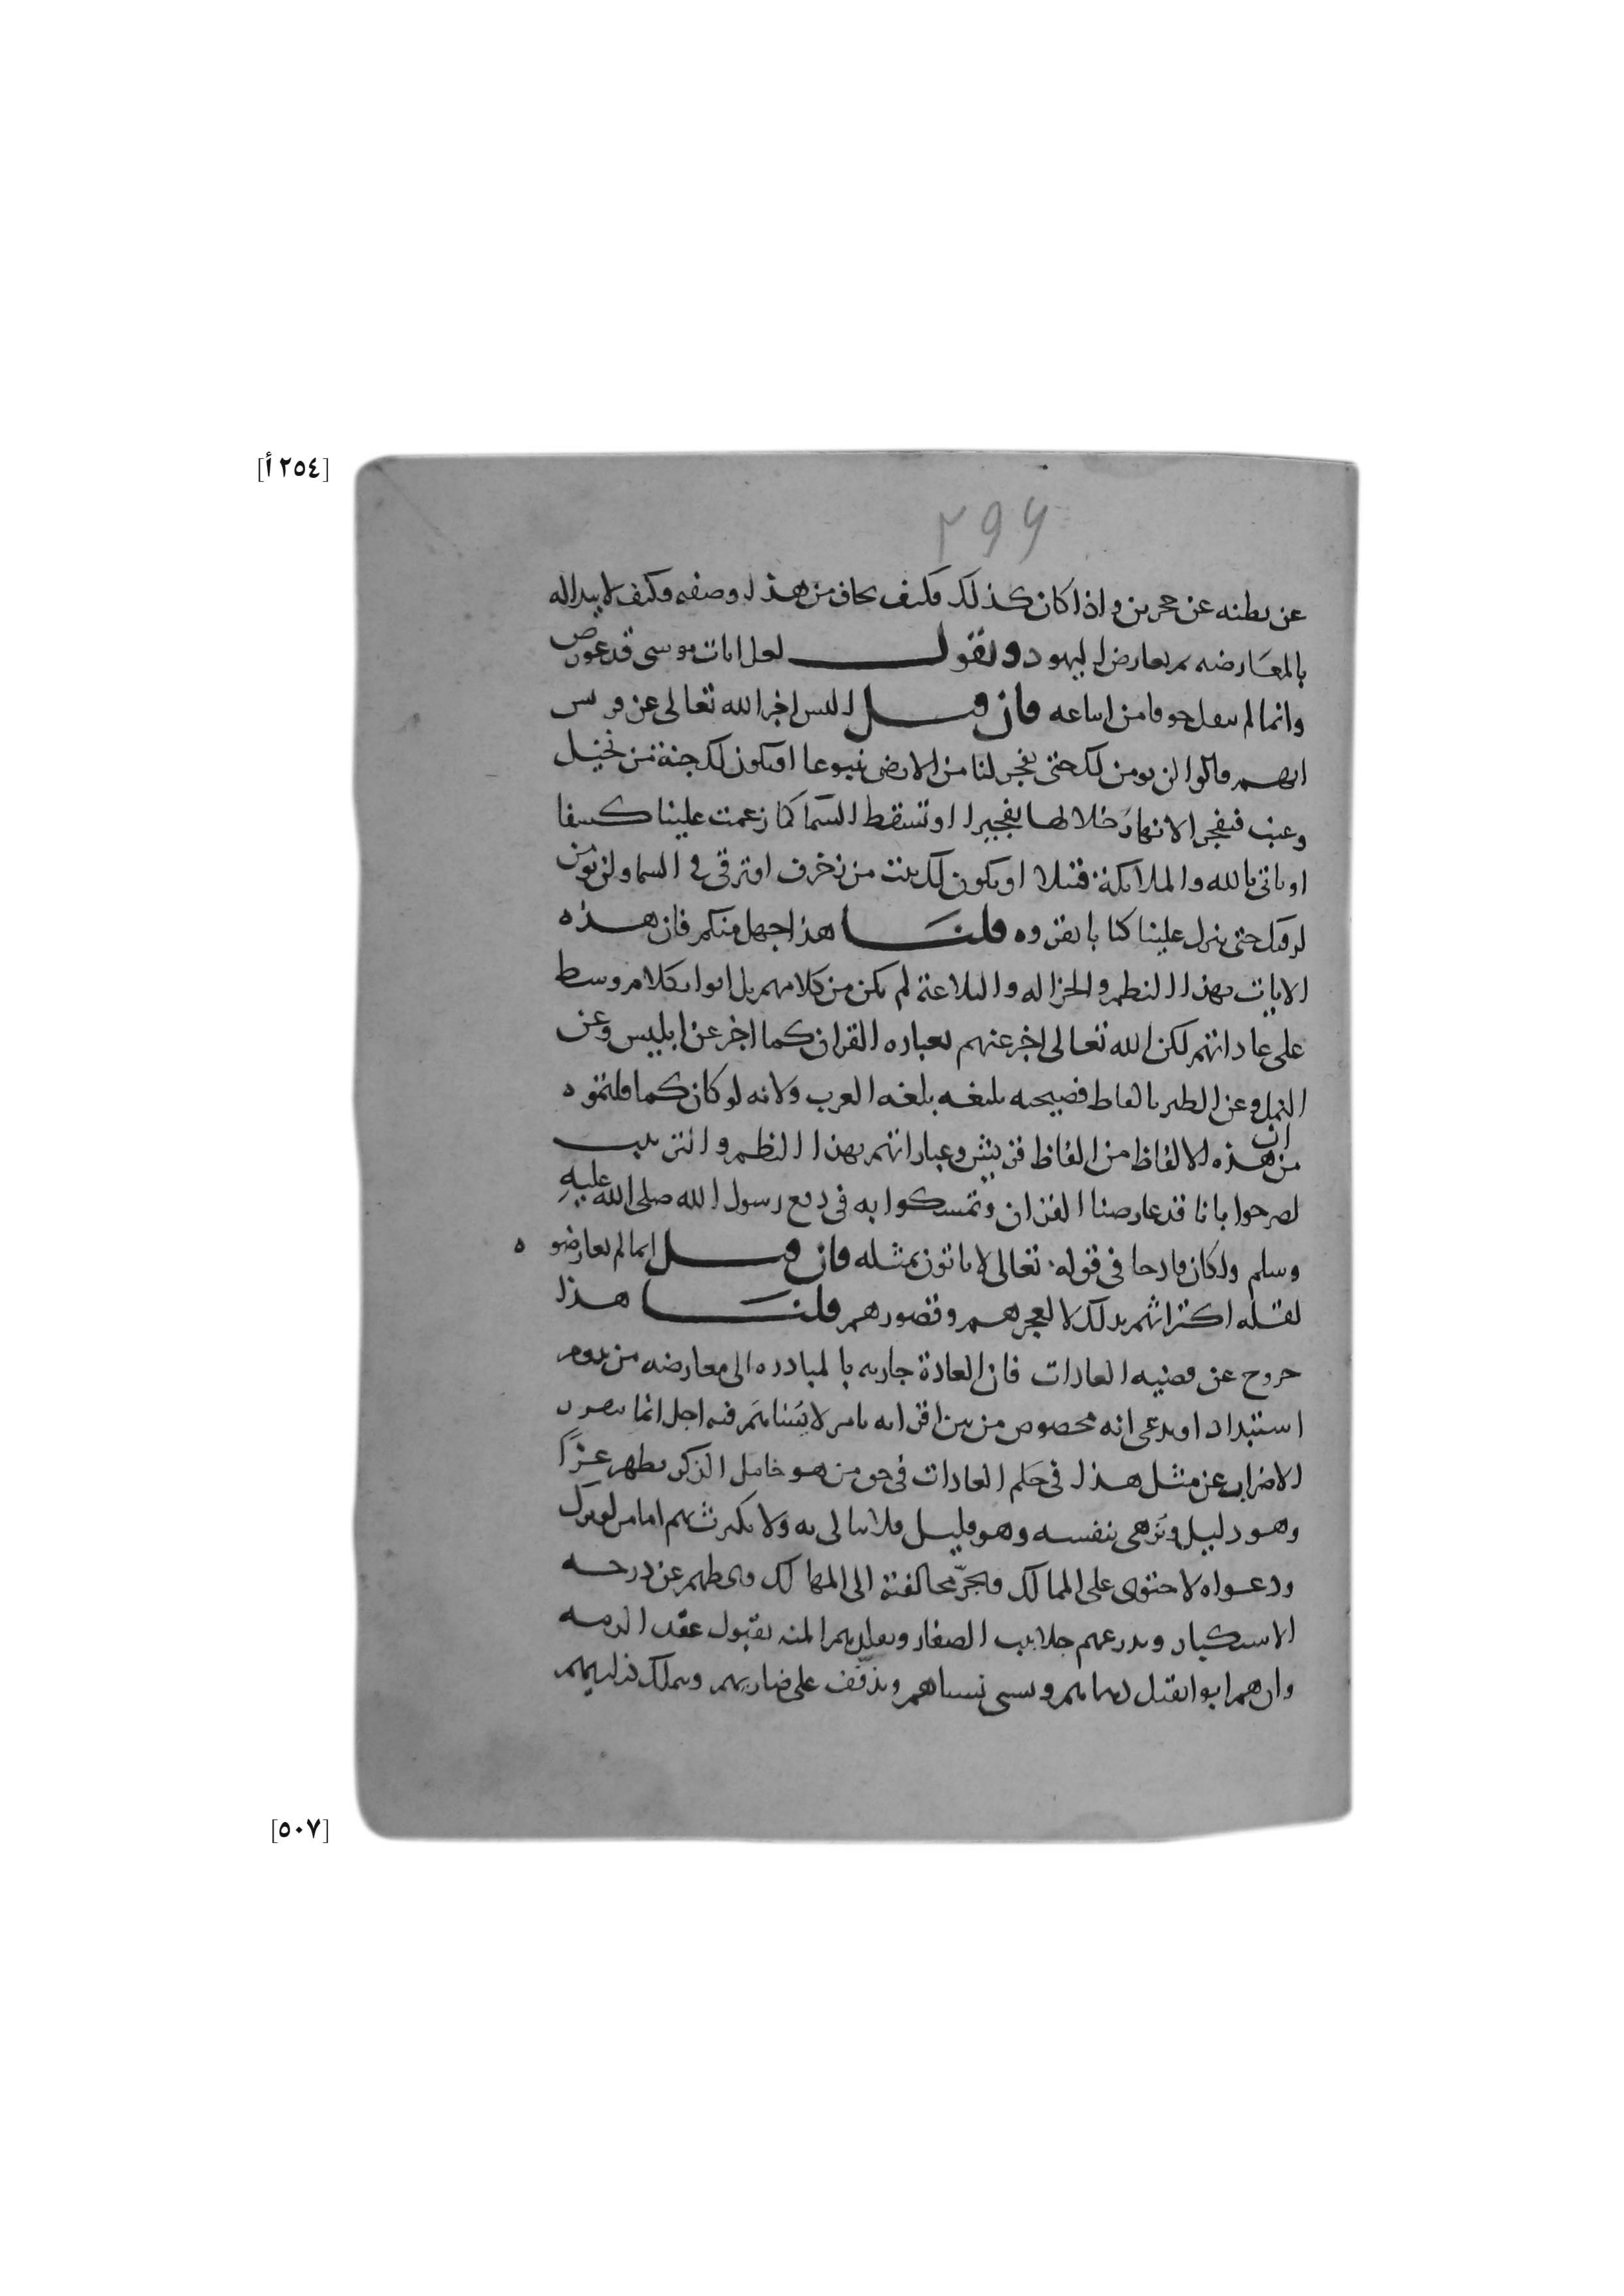 [٢٥٤ أ]
٢٩٦
عن بطنه عن حجرين واذا كان كذلك فكيف يخاف من هذا وصفه وكيف لا يبدا له
بالمعارضه ثم يعارض اليهود ونقول لعل ايات موسى قد عورض
وانما لم ينقل خوفا من اتباعه فان قيل اليس اخبر الله تعالى عن قريش
انهم قالوا لن نومن لك حتى تفجر لنا من الارض ينبوعا او تكون لك جنة من نخيل
وعنب فتفجر الانهار خلالها تفجيرا او تسقط السما كما زعمت علينا كسفا
او تاتي بالله والملائكة قبيلا او يكون لك بيت من زخرف او ترقى في السما ولن نومن
لرقيك حتى تنزل علينا كتابا نقروه قلنا هذا جهل منكم فان هذه
الايات بهذا النظم والجزاله والبلاغة لم يكن من كلامهم بل اتوا بكلام وسط
على عاداتهم لكن الله تعالى اخبر عنهم بعباره القران كما اخبر عن ابليس وعن
النمل وعن الطير بالفاظ فصيحه بليغه بلغه العرب ولانه لو كان كما قلتموه
من ان هذه الالفاظ من الفاظ قريش وعباراتهم بهذا النظم والترتيب
لصرحوا بانا قد عارضنا القران وتمسكوا به في دفع رسول الله صلى الله عليه
وسلم ولكان قادحا في قوله تعالى لا ياتون بمثله فان قيل انما لم يعارضوه
لقله اكتراثهم بذلك لا لعجزهم وقصورهم قلنا هذا
خروج عن قضيه العادات فان العادة جاريه بالمبادره الى معارضه من يروم
استبدادا ويدعي انه مخصوص من بين اقرانه بامر لا يساهم فيه اجل انما يتصور
الاضراب عن مثل هذا في حكم العادات في حق من هو خامل الذكر يظهر عزا
وهو ذليل ويزهى بنفسه وهو قليل فلا يبالى به ولا يكترث بهم اما من لو ترك
ودعواه لاحتوى على الممالك ويجر مخالفته الى المهالك ويحطهم عن درجه
الاستكبار ويدرعهم جلابيب الصغار ويقلدهم المنه بقبول عقد الذمه
وان هم ابوا يقتل رجالهم ويسبي نساهم ويذفف على ضاريهم ويملك ذراريهم
[٥٠٧]